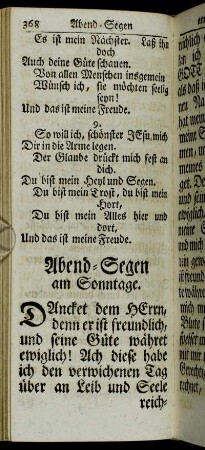 368 Abend-Segen
Es ist mein Nächster. Laß ihn
doch
Auch deine Güte schauen.
Von allen Menschen insgemein
Wünsch ich, sie möchten seelig
seyn!
Und das ist meine Freude.
9.
So will ich, schönster JEsu, mich
Dir in die Arme legen.
Der Glaube drückt mich fest an
dich.
Du bist mein Heyl und Segen.
Du bist mein Trost, du bist mein
Hort,
Du bist mein Alles hier und
dort,
Und das ist meine Freude.
Abend-Segen
am Sonntage.
DAncket dem HErrn,
denn er ist freundlich,
und seine Güte währet
ewiglich! Ach diese habe
ich den verwichenen Tag
über an Leib und Seele
reich-